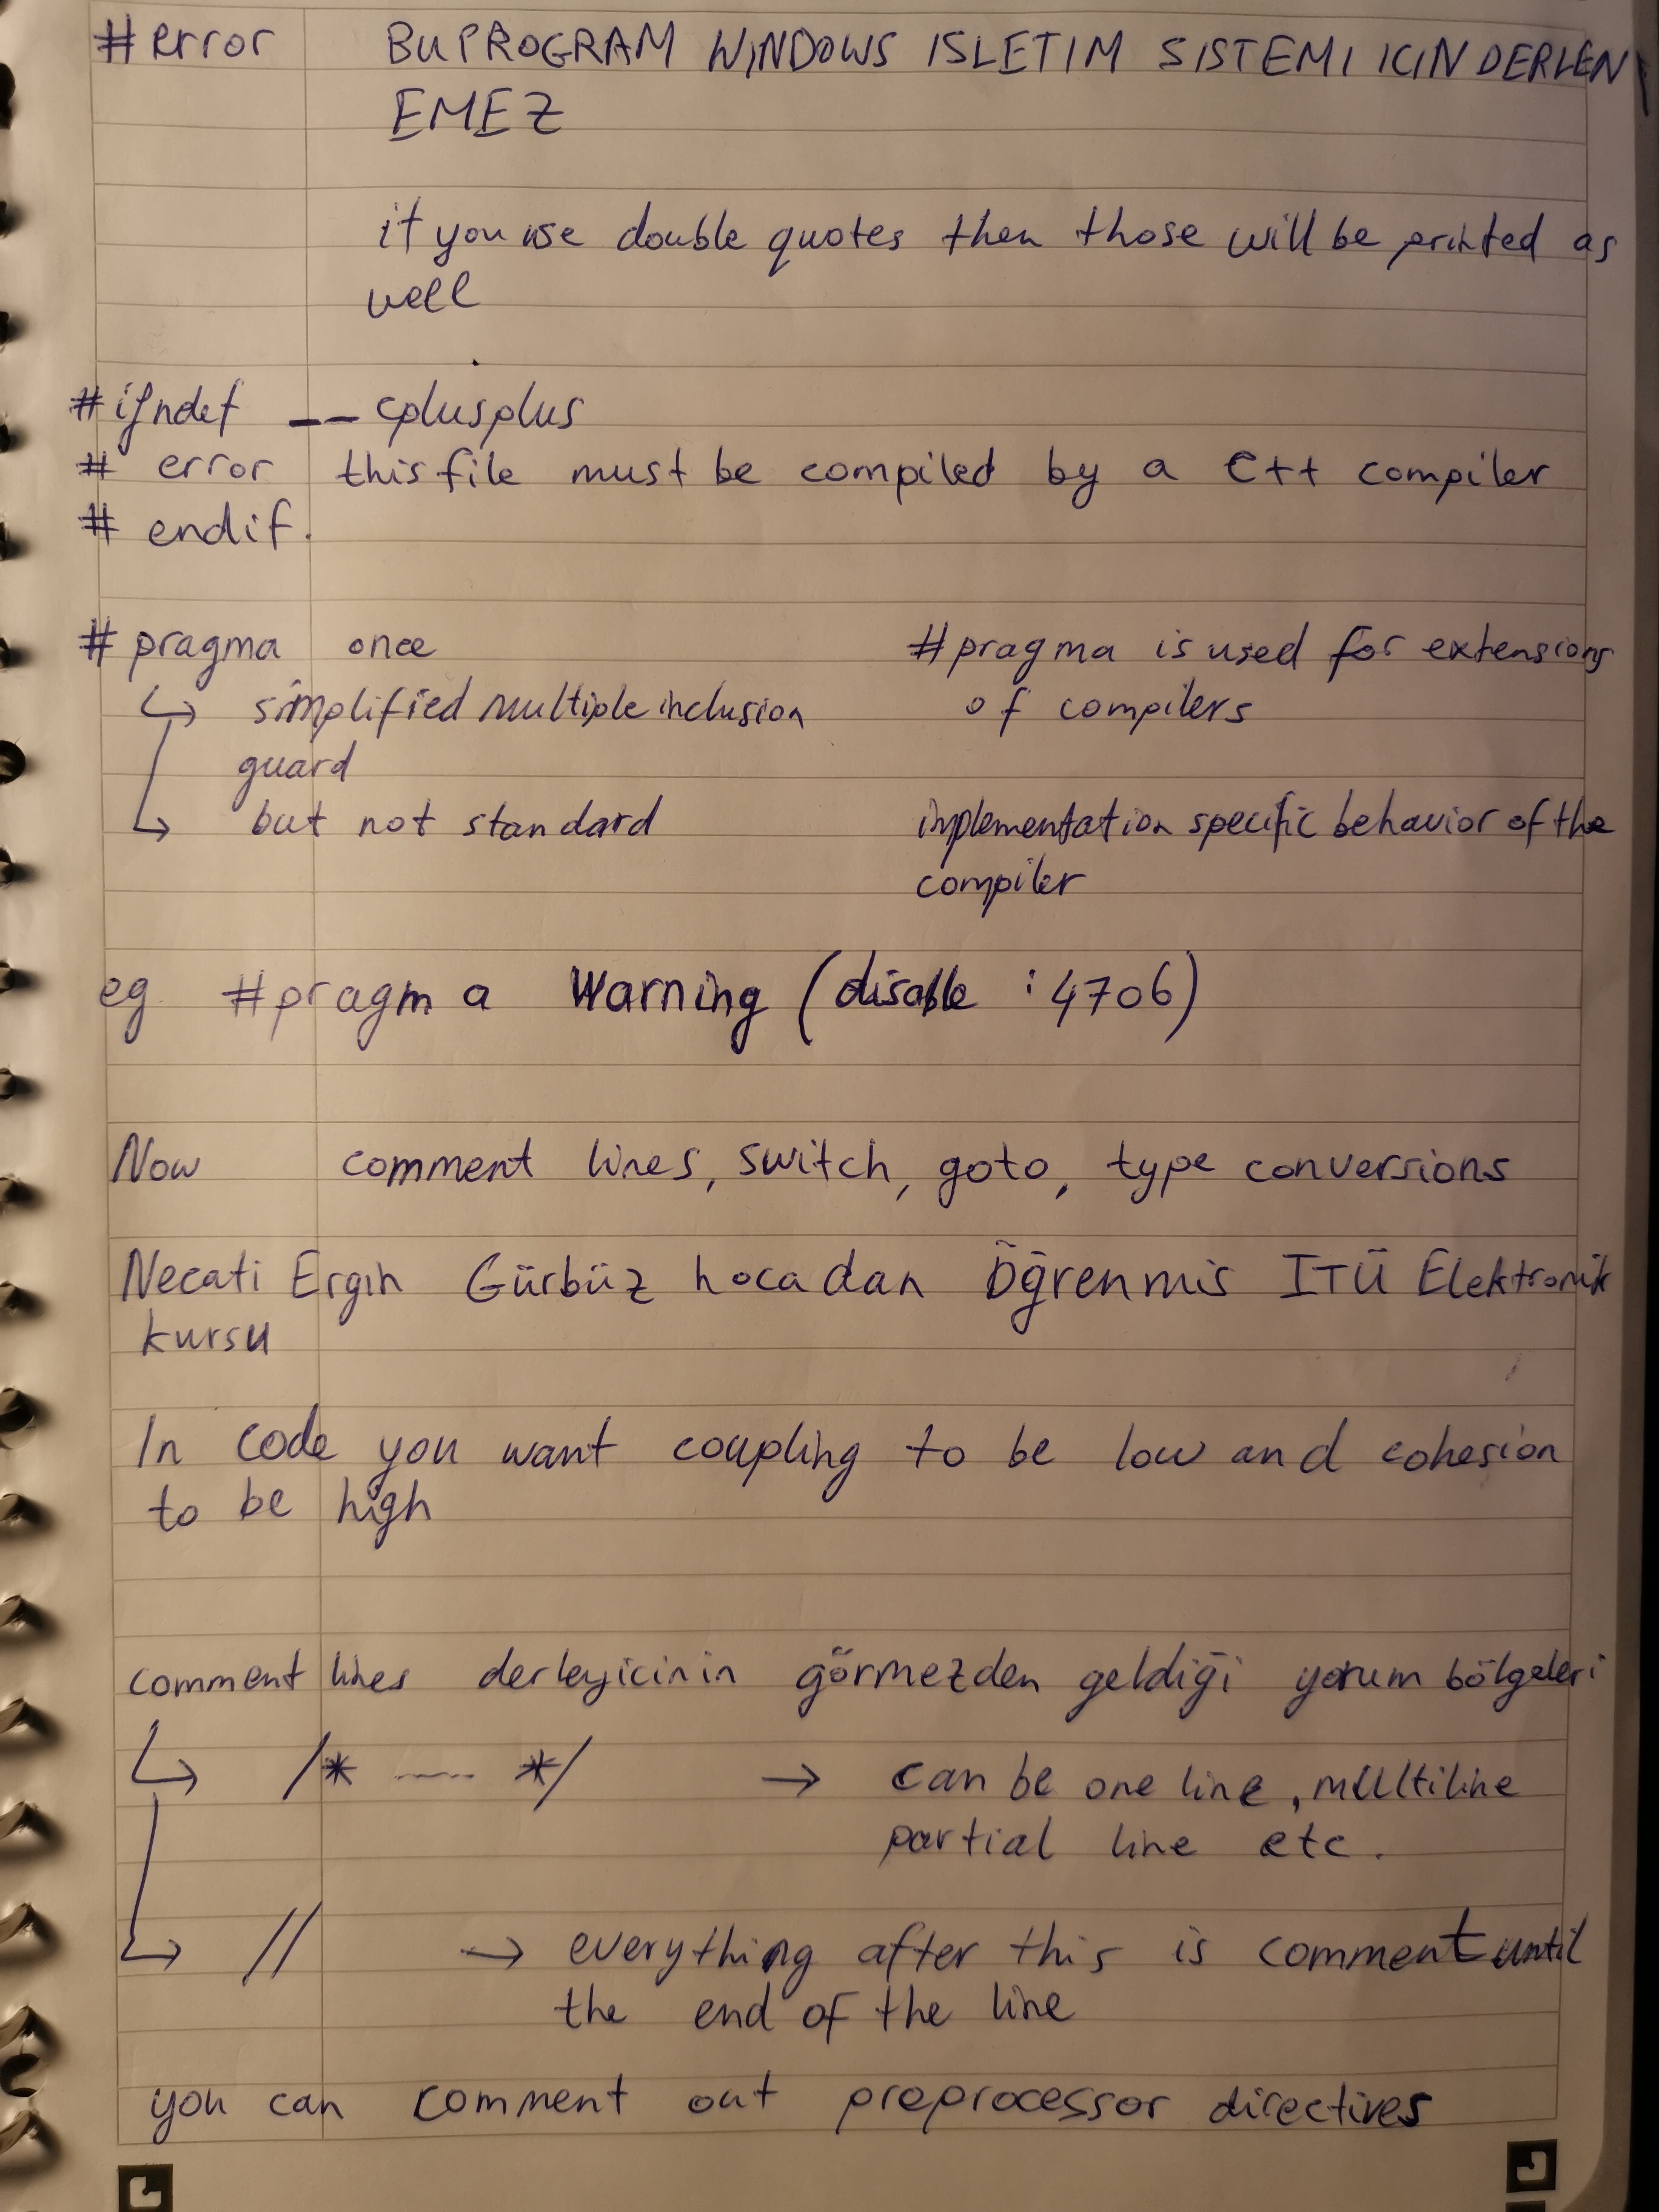 #error BU PROGRAM WINDOWS ISLETIM SISTEMI ICIN DERLEN\
EMEZ
if you use double quotes then those will be printed as
well
#ifndef __cplusplus
# error this file must be compiled by a C++ compiler
# endif.
# pragma once
↳ simplified multiple inclusion
guard
↳ but not standard
#pragma is used for extensions
of compilers
implementation specific behavior of the
compiler
eg #pragma warning (disable : 4706)
Now comment lines, switch, goto, type conversions
Necati Ergin Gürbüz hocadan Öğrenmis ITÜ Elektronik
kursu
In code you want coupling to be low and cohesion
to be high
comment lines derleyicinin görmezden geldiği yorum bölgeleri
↳ /* ---- */ → can be one line, multiline
partial line etc.
↳ // → everything after this is comment until
the end of the line
you can comment out preprocessor directives